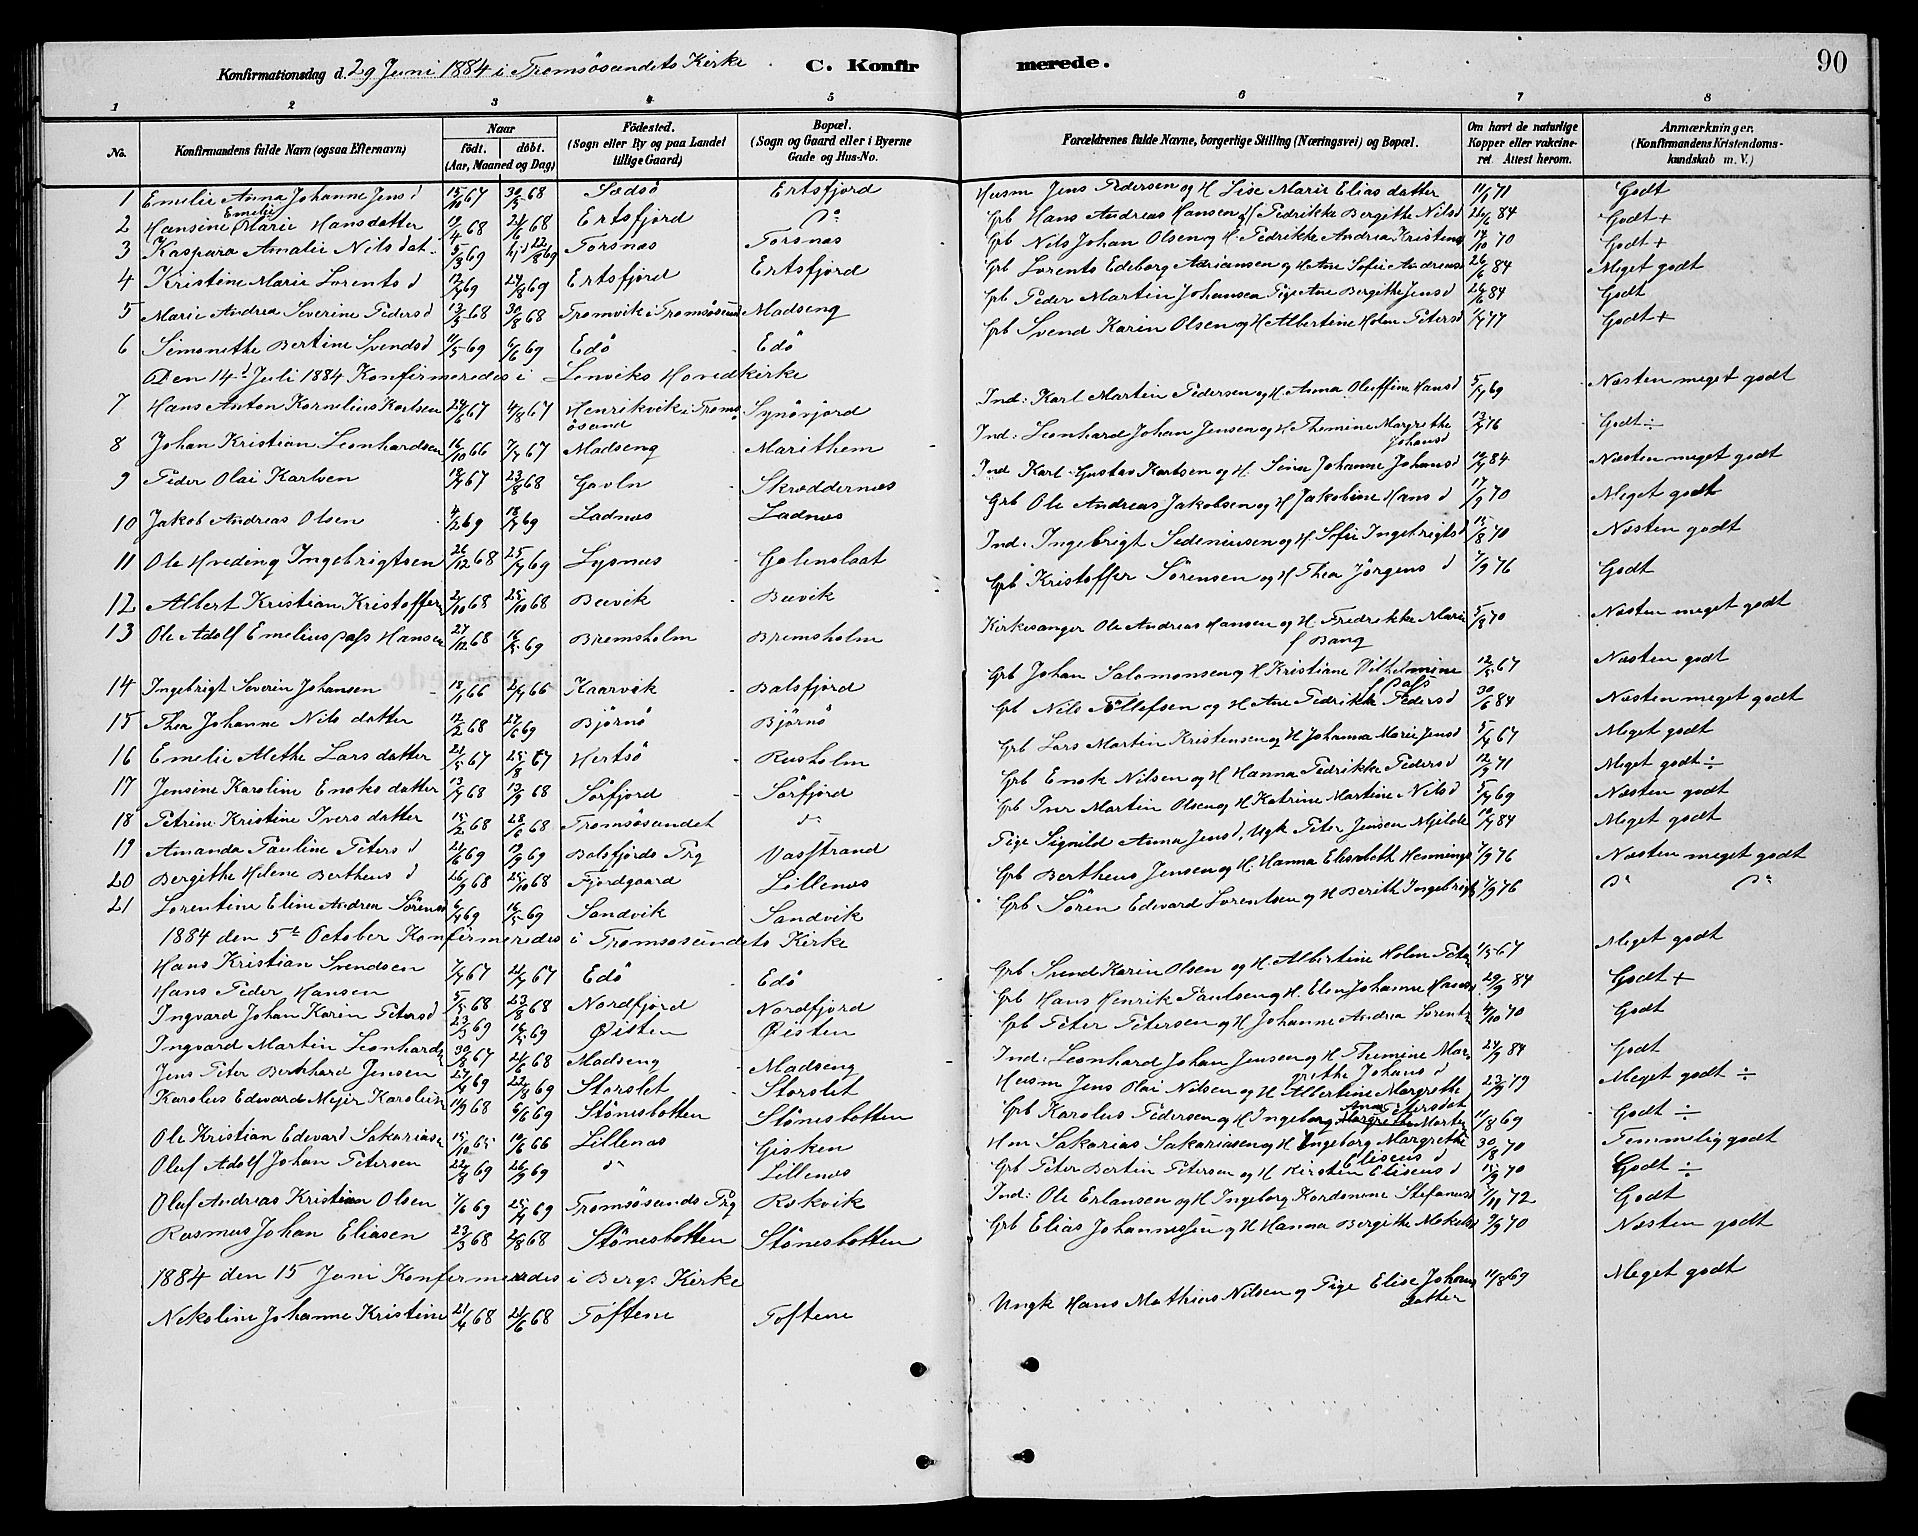 Konfirmationsdag d. 29 Juni 1884 i Tromsösundets Kirke C. Konfirmerede. 90
1 2 3 4 5 6 7 8
No. Konfirmandens fulde Navn (ogsaa Efternavn) Naar födt. döbt. (Aar, Maaned og Dag) Födested. (Sogn eller By og paa Landet tillige Gaard) Bopæl. (Sogn og Gaard eller i Byerne Gade og Hus-No. Forældrenes fulde Navne, borgerlige Stilling (Næringsvei) og Bopæl. Om havt de naturlige Kopper eller vakcineret. Attest herom. Anmærkninger. (Konfirmandens Kristendomskundskab m. V.)
1 Emelie Anna Johanne Jens d 15/10 67 30/5 68 Sædsö Ertsfjord Husm Jens Pedersen og H Lise Marie Elias datter 11/9 71 Godt
2 Hansine Emelie Marie Hansdatter 19/4 68 24/6 68 Ertsfjord Do Grb Hans Andreas Hansen og H Pedrikke Bergithe Nilsd 26/6 84 Godt +
3 Kaspara Amalie Nils dat 5/3 69 Torsnæs Torsnæs Grb Nils Johan Olsen og H. Pedrikke Andrea Kristens 17/10 70 Godt +
4 Kristine Marie Lorents d 12/4 69 27/8 69 Ertsfjord Ertsfjord Grb Lorents Edeborg Adriansen og H Ane Sofie Andreas 26/6 84 Meget godt
5 Marie Andrea Severine Peders d 13/5 68 30/8 68 Tromvik i Tromsösund Madseng Grb Peder Martin Johansen Pige Ane Bergithe Jens d 26/6 84 Godt
6 Simonethe Bertine Svends d 11/5 69 6/6 69 Edö Edö Grb Svend Karin Olsen og H Albertine Holm Peters d 1/7 77 Godt +
Den 14d Juli 1884 Konfirmeredes i Lenviks Hovedkirke
7 Hans Anton Kornelius Karlsen 24/6 67 4/8 67 Henrikvik i Tromsösund Synövjord Ind: Karl Martin Pedersen og H. Anna Oluffine Hans d 5/7 69 Næsten meget godt
8 Johan Kristian Leonhardsen 16/10 66 7/7 67 Madseng Marithem Ind: Leonhard Johan Jensen og H Themine Margrethe Johans d 13/7 76 Godt ÷
9 Peder Olai Karlsen 18/7 67 23/8 68 Gavln Skræddernæs Ind Karl Gustav Karlsen og H. Sina Johanne Johans d 10/7 84 Næsten meget godt
10 Jakob Andreas Olsen 4/2 69 18/7 69 Ladnæs Ladnæs Grb Ole Andreas Jakobsen og H Jakobine Hans d 17/9 70 Meget godt
11 Ole Hveding Ingebrigtsen 26/12 68 25/7 69 Lysnæs Galenslaat Ind: Ingebrigt Sedeniusen og H. Sofie Ingebrigts d 15/8 70 Næsten godt
12 Albert Kristian Kristoffer 2/10 68 25/10 68 Bævik Bævik Grb Kristoffer Sörensen og H Thea Jörgens d 7/9 76 Godt
13 Ole Adolf Emelius Pass Hansen 27/12 68 16/5 69 Bremsholm Bremsholm Kirkesanger Ole Andreas Hansen og H. Fredrikke Marie f Bang 5/8 70 Næsten meget godt
14 Ingebrigt Severin Johansen 18/1 66 2/7 66 Kaarvik Balsfjord Grb Johan Salomonsen og H Kristiane Vilhelmine f Pass 12/5 67 Næsten godt
15 Thea Johanne Nils datter 12/2 68 27/6 69 Björnö Björnö Grb Nils Tollefsen og H Ane Pedrikke Peders d 30/6 84 Næsten meget godt
16 Emelie Alethe Lars datter 21/5 67 25/8 67 Hertsö Rusholm Grb Lars Martin Kristensen og H Johanna Marie Jens d 5/4 67 Meget godt
17 Jensine Karoline Enoks datter 13/7 68 13/9 68 Sörfjord Sörfjord Grb Enok Nilsen og H Hanna Pedrikke Peders d 12/9 71 Meget godt ÷
18 Petrine Kristine Ivers datter 15/2 68 28/6 68 Tromsösundet do Grb Iver Martin Olsen og H Katrine Martine Nils d 5/7 69 Næsten godt
19 Amanda Pauline Peters d 21/6 69 19/9 69 Balsfjords Prg Vasstrand Pige Signild Anna Jens d, Ugk Peter Jensen Mjelde 10/7 84 Meget godt
20 Bergithe Helene Bertheus d 26/9 68 25/10 68 Fjordgaard Lillenæs Grb Bertheus Jensen og H. Hanna Elisabeth Hennings 7/9 76 Næsten meget godt
21 Lorentine Eline Andrea Sörens 6/4 69 16/5 69 Sandvik Sandvik Grb Sören Edevard Lorentsen og H Berith Ingebrigt 7/9 76 Do Do
1884 den 5te October Konfirmeredes i Tromsösundets Kirke
Hans Kristian Svendsen 7/7 67 21/7 67 Edö Edö Grb Svend Karin Olsen og H. Albertine Holm Peter 1/5 67 Meget godt
Hans Peder Hansen 5/5 68 23/8 68 Nordfjord Nordfjord Grb Hans Henrik Paulsen og H. Elen Johanne Hans 29/9 84 Godt +
Ingvard Johan Karin Peters d 23/3 69 16/5 69 Øisten Øisten Grb Peter Petersen og H Johanne Andrea Lorents 4/10 70 Godt
Ingvard Martin Leonhards 30/8 67 24/6 68 Madseng Madseng Ind: Leonhard Johan Jensen og H Themine Margrethe Johans d 24/9 84 Godt
Jens Peter Bernhard Jensen 27/4 69 22/8 69 Storslet Storslet Husm Jens Olai Nilsen og H Albertine Margrethe Petersdat 23/9 79 Meget godt ÷
Karolus Edevard Mejer Karolus 11/9 68 6/6 69 Stönesbotten Stönesbotten Grb Karolus Pedersen og H Ingeborg Anna Morten 11/8 69 Godt ÷
Ole Kristian Edevard Sakariasen 15/10 65 10/6 66 Lillenæs Gisken Hm Sakarias Sakariasen og H Ingeborg Margrethe Eliseus d 30/8 70 Temmelig godt
Oluf Adolf Johan Petersen 22/8 69 26/9 69 do Lillenæs Grb Peter Bertin Petersen og H Kirsten Eliseus d 15/9 70 Godt ÷
Oluf Andreas Kristian Olsen 7/6 69 25/7 69 Tromsösunds Prg Rökvik Ind: Ole Erlansen og H Ingeborg Kardemine Stefanus 7/11 72 Godt
Rasmus Johan Eliasen 23/3 68 2/8 68 Stönesbotten Stönesbotten Grb Elias Johannessen og H Hanna Bergithe Mekels 9/9 70 Næsten godt
1884 den 15 Juni Konfirmeredes i Bergs Kirke
Nekoline Johanne Kristine 21/4 68 21/6 68 Toftene Toftene Ungk Hans Mathias Nilsen og Pige Elise Johans datter 11/8 69 Meget godt